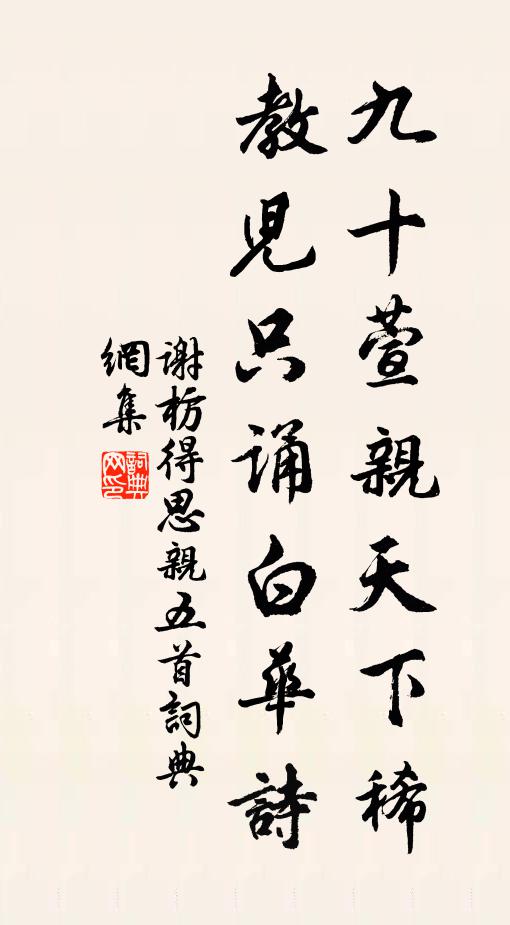 九十萱親天下稀
教児只诵白華詩
谢枋得思親五首詞典
網集
詞典
网印